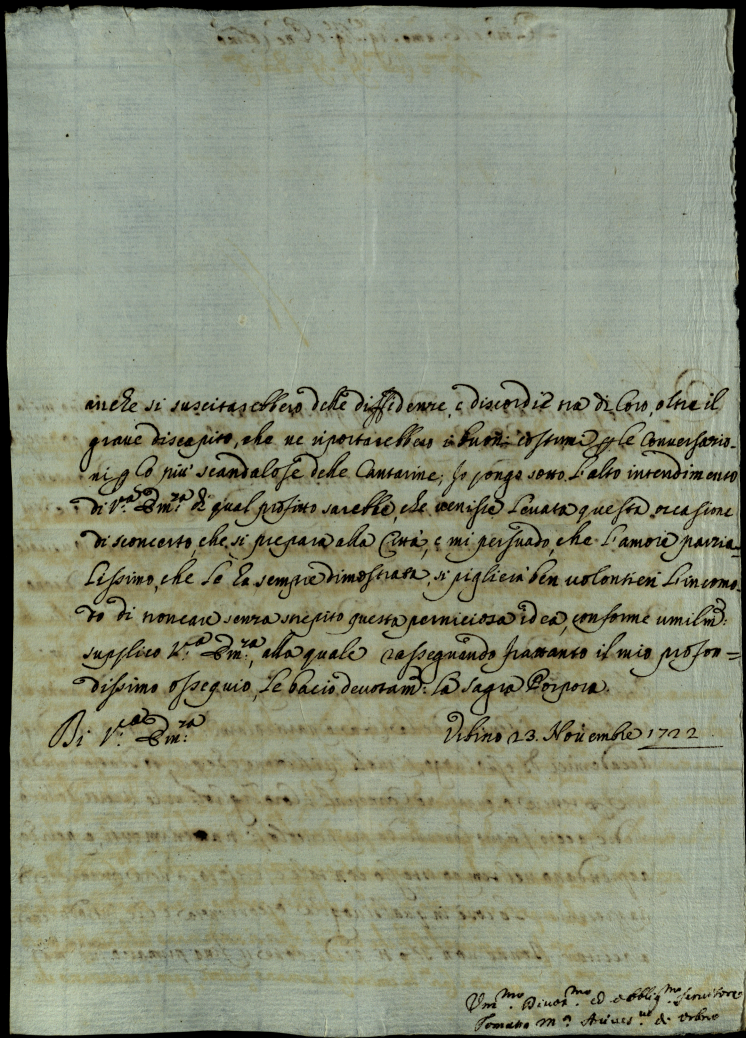 anche si suscitarebbero delle diffidenze, e discordie trà di loro, oltre il
grave discapito, che ne riportarebbero i buoni costumi p le Conversazio-
ni p lo più scandalose delle Cantarine; Io pongo sotto l'alto intendimento
di V.ra Em.za di qual profitto sarebbe, che venisse levata questa occasione
di sconcerto, che si prepara alla Città, e mi persuado, che l'amore parzia-
lissimo, che le hà sempre dimostrato, si piglierà ben volontieri l'incomo-
do di troncare senza strepito questa perniciosa idea, conforme umilm.
supplico V.ra Em.za, alla quale rassegnando frattanto il mio profon=
dissimo ossequio, le bacio devotam. la Sagra Porpora.
Di V.ra Em.za
Urbino 23. Novembre 1722.
Um.mo Divot.mo ed obblig.mo servitore
Tomaso M.a Arcives.vo di Urbino